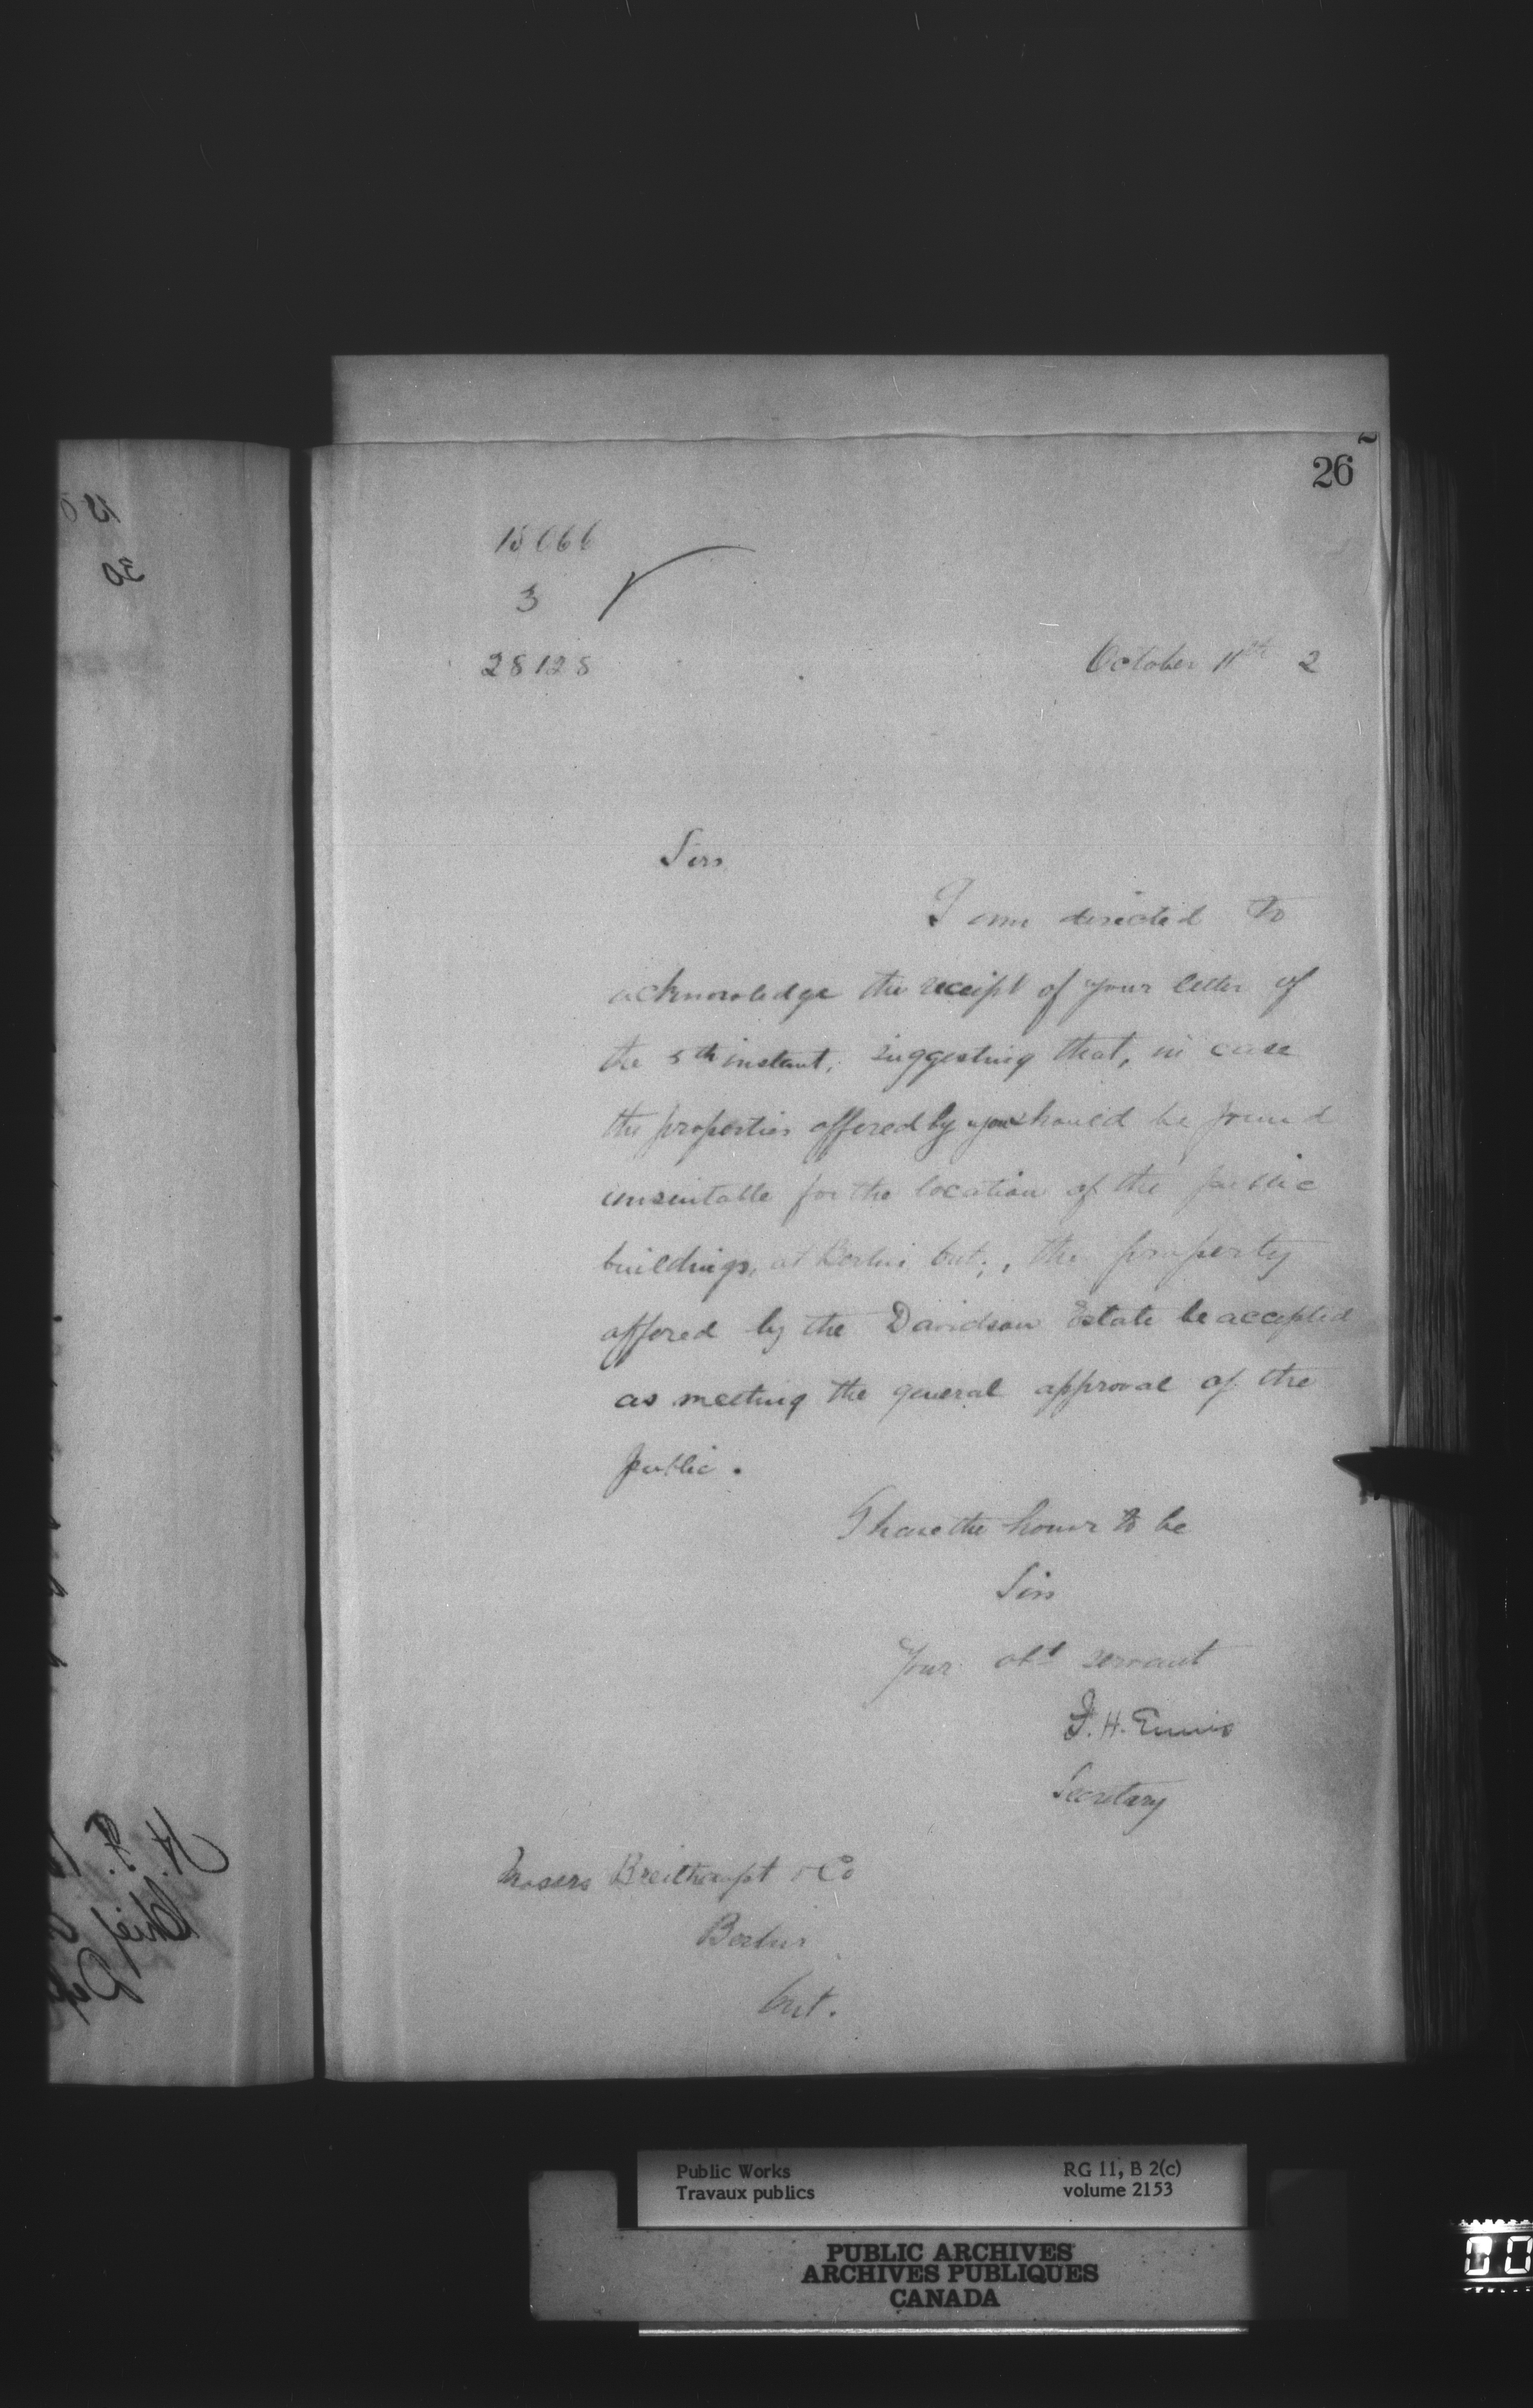 26
15066
3
28128
October 11th 2
Sirs
I am directed to
acknowledge the receipt of your letter of
the 5th instant, suggesting that, in case
the properties offered by you should be found
unsuitable for the location of the public
buildings, at Berlin Ont., the property
offered by the Davidson Estate be accepted
as meeting the general approval of the
public.
I have the honor to be
Sirs
Your obt servant
F. H. Ennis
Secretary
Messrs Breithaupt & Co
Berlin
Ont.
30
H. F.
Chief
Public Works
Travaux publics
RG 11, B 2(c)
volume 2153
PUBLIC ARCHIVES
ARCHIVES PUBLIQUES
CANADA